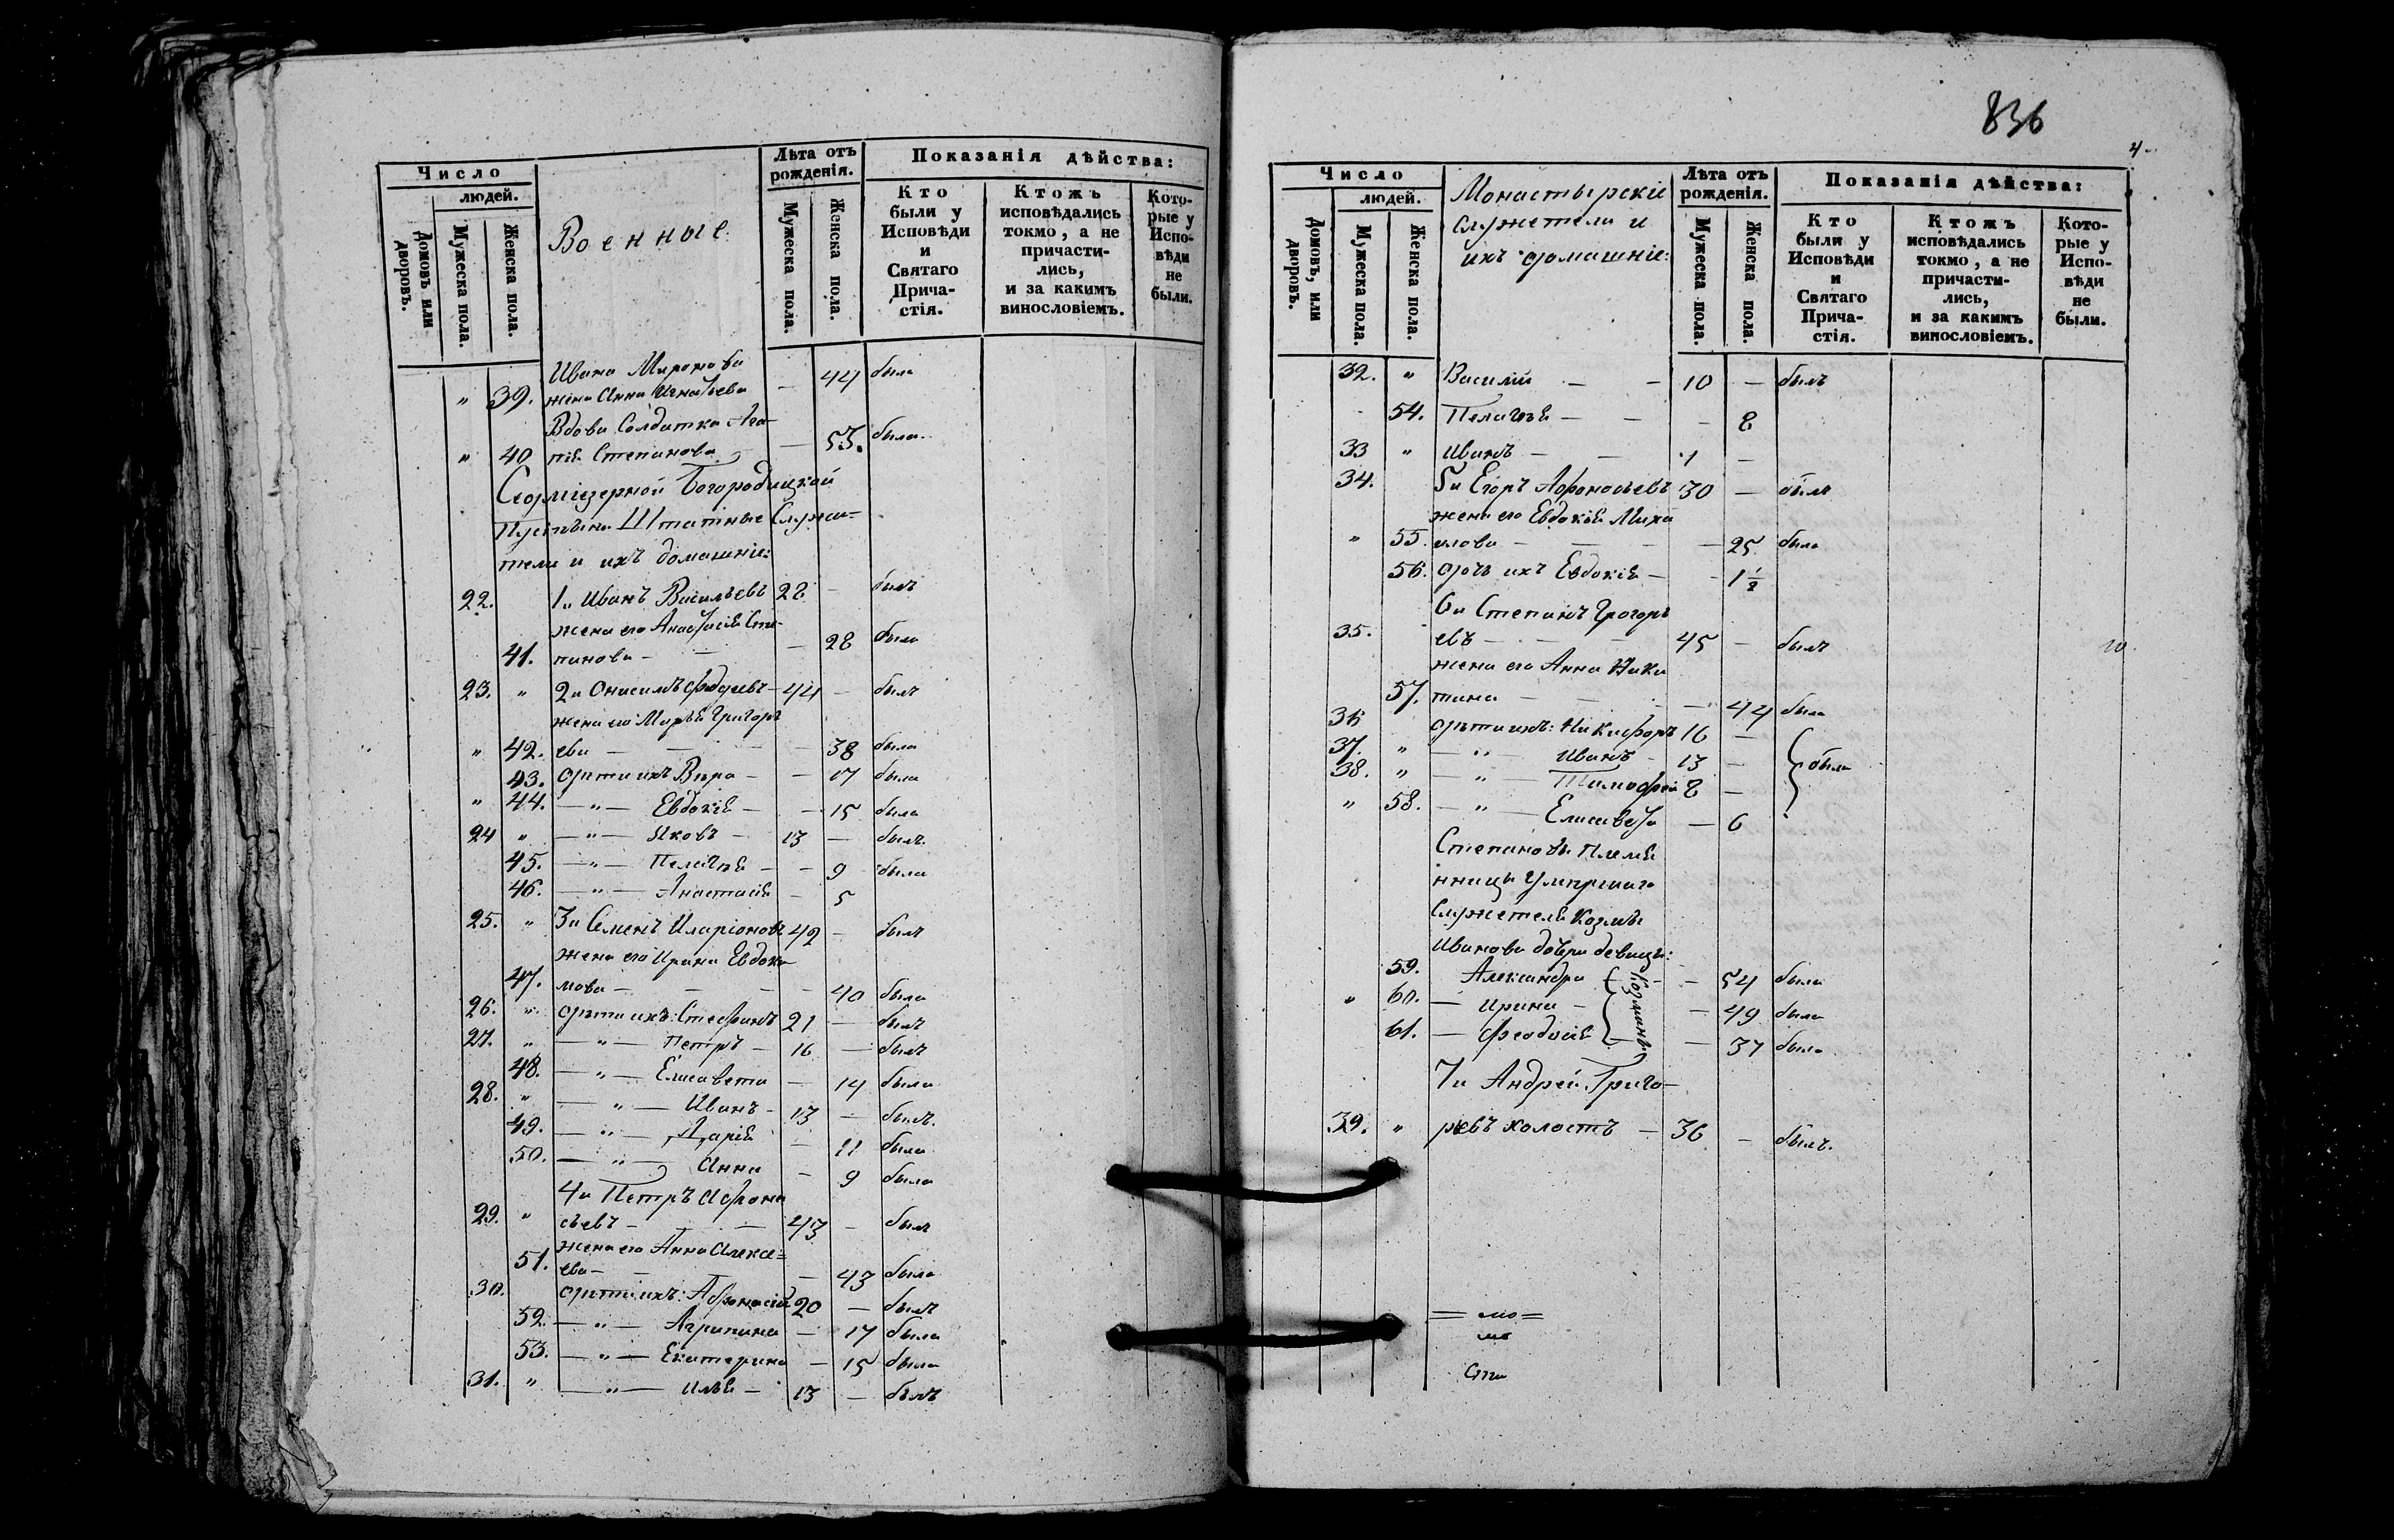 Число
людей.
Домовъ или дворовъ.
Мужеска пола.
Женска пола.
Военные
Лѣта отъ рожденія.
Мужеска пола.
Женска пола.
Показанія дѣйства:
Кто были у Исповѣди и Святаго Причастія.
Ктожъ исповѣдались токмо, а не причастились, и за какимъ винословіемъ.
Которые у Исповѣди не были.
Ивана Миронова
" 39. жена Анна Игнатьева — 44 была
Вдова Солдатка Ага-
" 40 пія Степанова — 53. была
Богородицкой
Пустыни Штатные Служи-
тели и ихъ домашніе:
22. 1й Иванъ Васильевъ 28 — былъ
жена его Анастасія Сте-
41. панова — — 28 была
23. " 2й Онисимъ Фадѣевъ — 44 — былъ
жена его Марья Григорь
" 42. ева — — — 38 была
43. дѣти ихъ Вѣра — — 17 была
" 44. — " — Евдокія — — 15 была
24 " — " — Яковъ — 13 — былъ.
45. — " — Пелагѣя — — 9 была
46. — " — Анастасія — 5
25. " 3й Семенъ Иларіоновъ 42 — былъ
жена его Ирина Евдоки
47. мова — — — — 40 была
26. " дѣти ихъ: Стефанъ 21 — былъ
27. " — " — Петръ — 16 — былъ
48. — " — Елисавета — 14 была
28. " — " — Иванъ — 13 — былъ.
49. — " — Дарія — 11 была
50. — " — Анна — 9 была
4й Петръ Афона
29. " сьевъ — — 43 — былъ
жена его Анна Алексѣ=
51. ева — — — 43 была
30. дѣти ихъ: Афонасій 20 — былъ
52. — " — Агрипина — 17 была
53. — " — Екатерина — 15 была
31. " — " — Илья — 13 — былъ
836
4
Число
людей.
Домовъ, или дворовъ.
Мужеска пола.
Женска пола.
Монастырскіе
служители и
ихъ домашніе:
Лѣта отъ рожденія.
Мужеска пола.
Женска пола.
Показанія дѣйства:
Кто были у Исповѣди и Святаго Причастія.
Ктожъ исповѣдались токмо, а не причастились, и за какимъ винословіемъ.
Которые у Исповѣди не были.
32. " Василій — — 10 — былъ
54. Пелагѣя — — — 8
33 " Иванъ — — 1 —
34. 5й Егоръ Афонасьевъ 30 — былъ
жена его Евдокія Миха
" 55. илова — — — — 25 была
56. дочь ихъ Евдокія — — 1 1/2
6й Степанъ Григорь
35. евъ — — — 45 — былъ
жена его Анна Ники
57. тина — — — — 44 была
36 дѣти ихъ: Никифоръ 16 —
37. " — " — Иванъ — 13 — были
38. " — " — Тимофей 8 —
" 58. — " — Елисавета — 6
Степановы племя
нницы умершаго
Служителя Козмы
Иванова дочери девицы:
59. Александра — — 54 была
Козмины
" 60. — Ирина — — 49 была
61. — Феодосія — — 37 была
7й Андрей Григо-
39. " рьевъ холостъ — 36 — былъ.